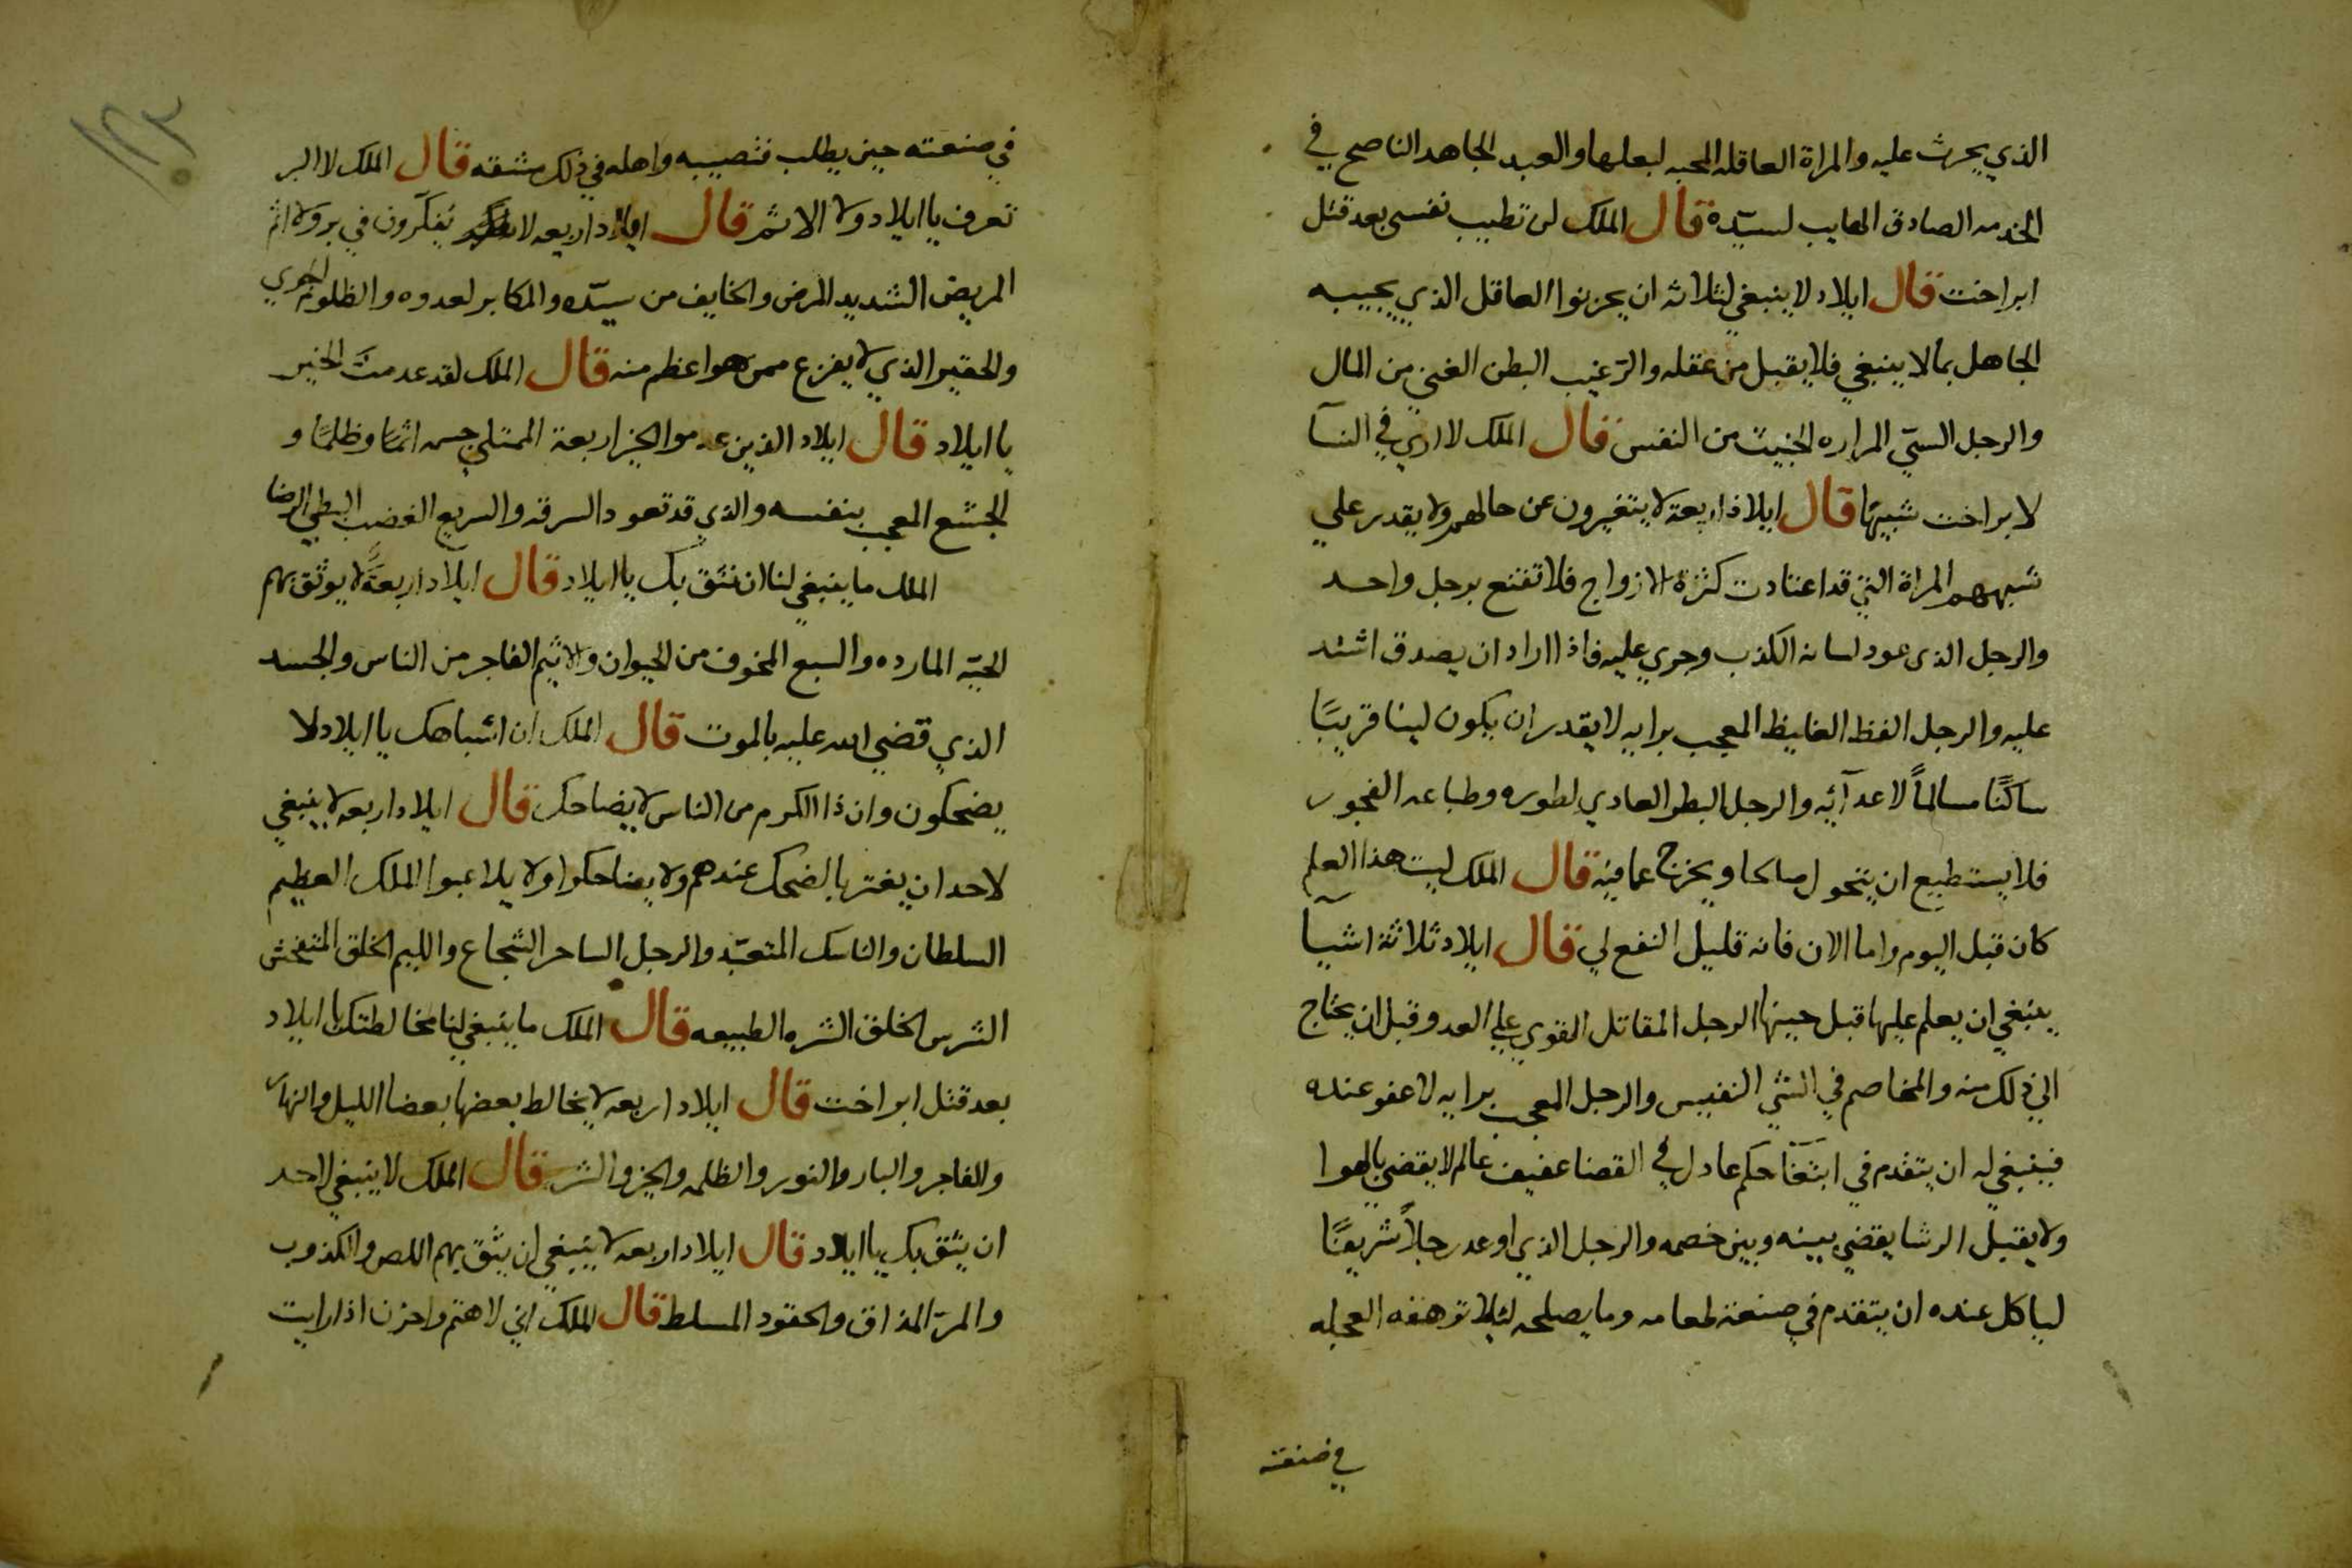 الذي يحرث عليه والمراة العاقله المحبه لبعلها والعبد الجاهد الناصح في
الخدمه الصادق الهايب لسيّده قال الملك لن تطيب نفسي بعد قتل
ابراخت قال ايلاد لا ينبغي لثلاثه ان يحزنوا العاقل الذي يجيبه
الجاهل بمالا ينبغي فلا يقبل من عقله والرّغيب البطن الغني من المال
والرجل السيّي المراره الخبيث من النفس قال الملك لا ارى في النسآ
لابراخت شبيهًا قال ايلاذ اربعة لا يتغيرون عن حالهم ولا يقدر علي
شبههم المراة التي قد اعتادت كثرة الازواج فلا تقنع برجل واحد
والرجل الذى عود لسانه الكذب وجري عليه فاذا اراد ان يصدق اشتد
عليه والرجل الفظ الغليظ المعجب برايه لا يقدر ان يكون لينا قريبًا
ساكنًا مسالمًا لاعدآئه والرجل البطر العادي لطوره وطباعه الفجور
فلا يستطيع ان يتحول صالحا ويخرج عما فيه قال الملك ليت هذا العلم
كان قبل اليوم واما الان فانه قليل النفع لي قال ايلاد ثلاثة اشيآ
ينبغي ان يعلم عليها قبل حينها الرجل المقاتل القوي علي العدو قبل ان يحتاج
الي ذلك منه والمخاصم في الشي النفيس والرجل المعجب برايه لا عفو عنده
فينبغي له ان يتقدم في ابتغا حكم عادل في القضا عفيف عالم لا يقضي بالهوا
ولا يقبل الرشا يقضي بينه وبين خصمه والرجل الذي اوعد رجلاً شريفًا
لياكل عنده ان يتقدم في صنعة طعامه وما يصلحه لئلا ترهفه العجله
في صنعته
١٢٣
في صنعته حين يطلب فتصيبه واهله في ذلك مشقه قال الملك لا البر
تعرف يا ايلاد ولا الاثم قال ايلاد اربعه لا يفكرون في بر ولا اثم
المريض الشديد المرض والخايف من سيّده والمكابر لعدوه والظلوم الجري
والحقير الذي لا يفزع ممن هو اعظم منه قال الملك لقد عدمتَ الخير
يا ايلاد قال ايلاد الذين عدموا الخير اربعة الممتلي جسمه اثمًا وظلمًا و
الجشع المعجب بنفسه والذي قد تعود السرقه والسريع الغضب البطي الرضا
الملك ما ينبغي لنا ان نثق بك يا ايلاد قال ايلاد اربعةً لا يوثق بهم
الحيّه المارده والسبع المخوف من الحيوان والاثيم الفاجر من الناس والجسد
الذي قضي الله عليه بالموت قال الملك ان اشباهك يا ايلاد لا
يضحكون وان ذا الكرم من الناس لا يضاحك قال ايلاد اربعه لا ينبغي
لاحد ان يغتر بالضحك عندهم ولا يضاحكوا ولا يلاعبوا الملك العظيم
السلطان والناسك المتعبّد والرجل الساحر الشجاع واللييم الخلق المتفحش
الشرس الخلق الشره الطبيعه قال الملك ما ينبغي لنا مخالطتك يا ايلاد
بعد قتل ابراخت قال ايلاد اربعه لا يخالط بعضها بعضا الليل والنهار
والفاجر والبار والنور والظلمه والخير والشر قال الملك لا ينبغي لاحد
ان يثق بك يا ايلاد قال ايلاد اربعه لا ينبغي ان يثق بهم اللص والكذوب
والمرّ المذاق والحقود المسلط قال الملك اني لاهتم واحزن اذا رايت